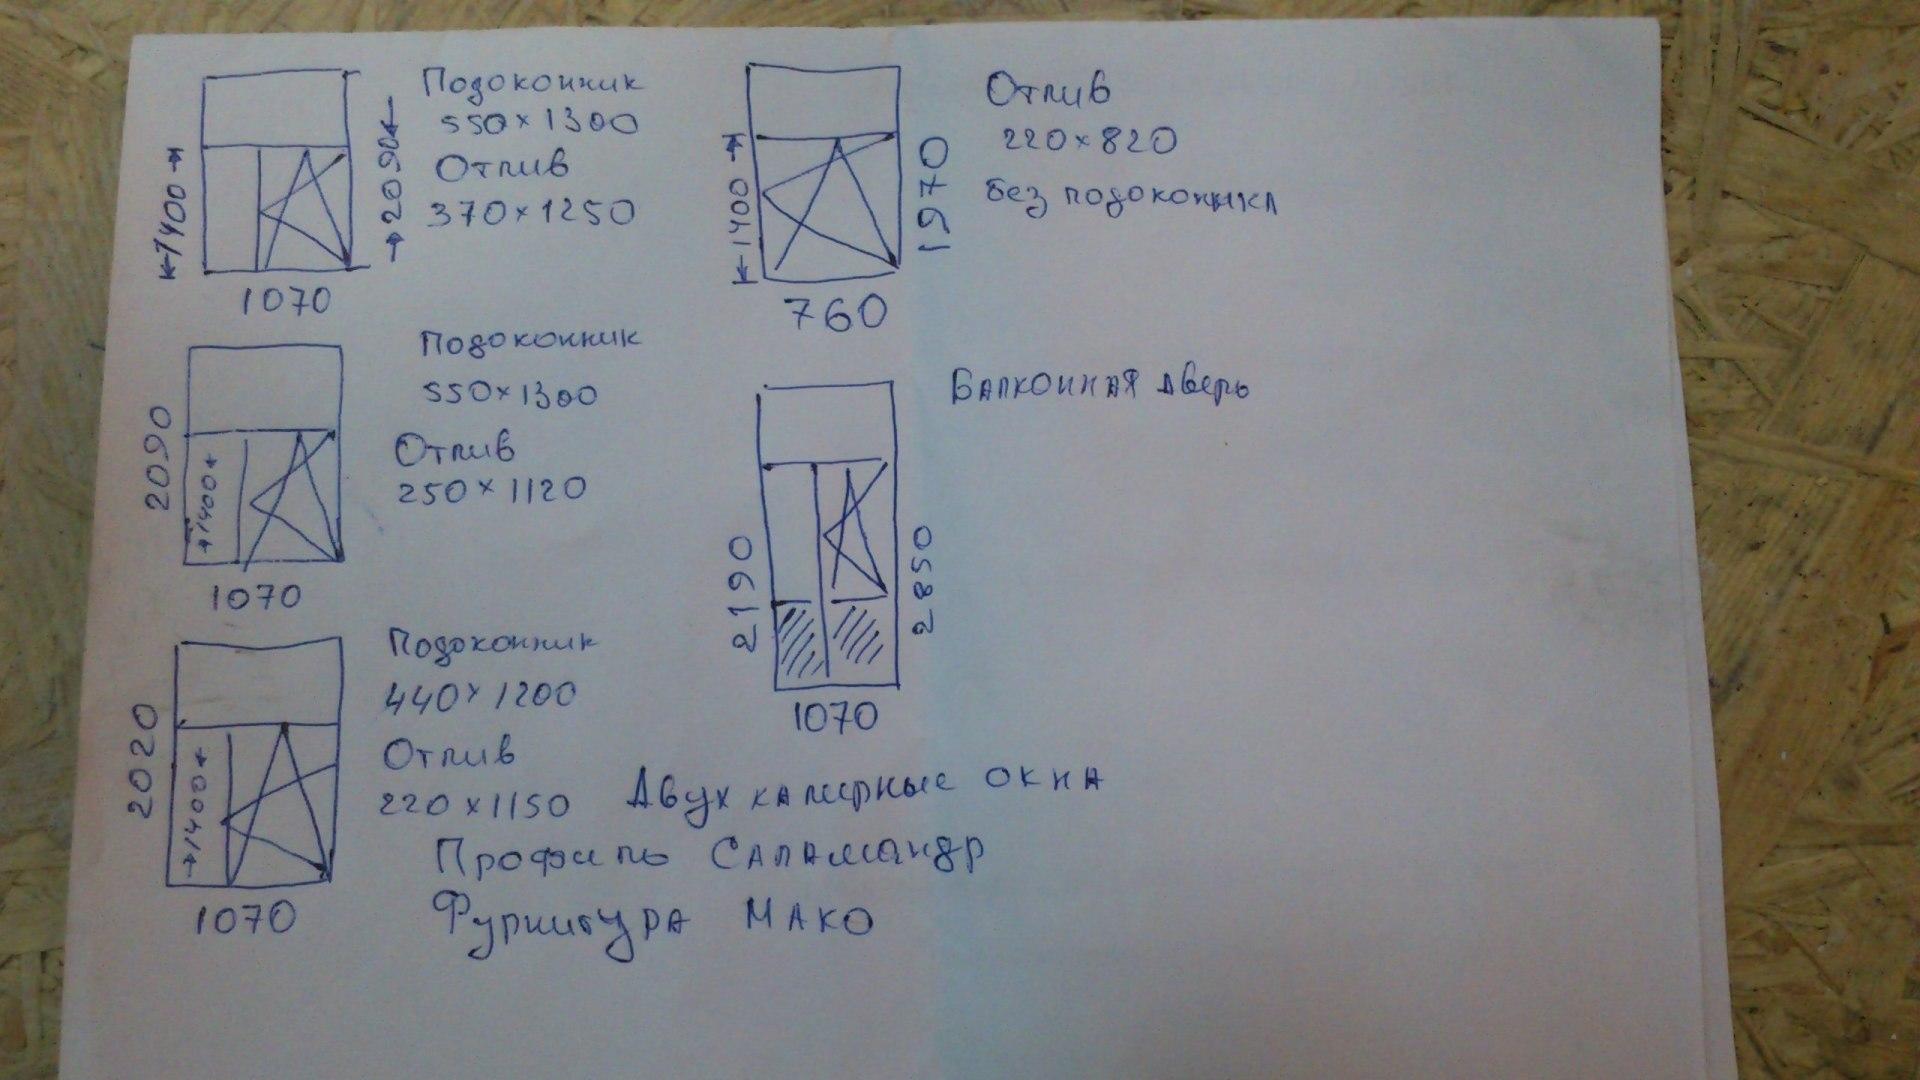 1400
2090
1070
Подоконник
550×1300
Отлив
370×1250
1400
1970
760
Отлив
220×820
без подоконника
2090
1400
1070
Подоконник
550×1300
Отлив
250×1120
2190
2850
1070
Балконная дверь
2020
1400
1070
Подоконник
440×1200
Отлив
220×1150
Двухкамерные окна
Профиль Саламандр
Фурнитура МАКО